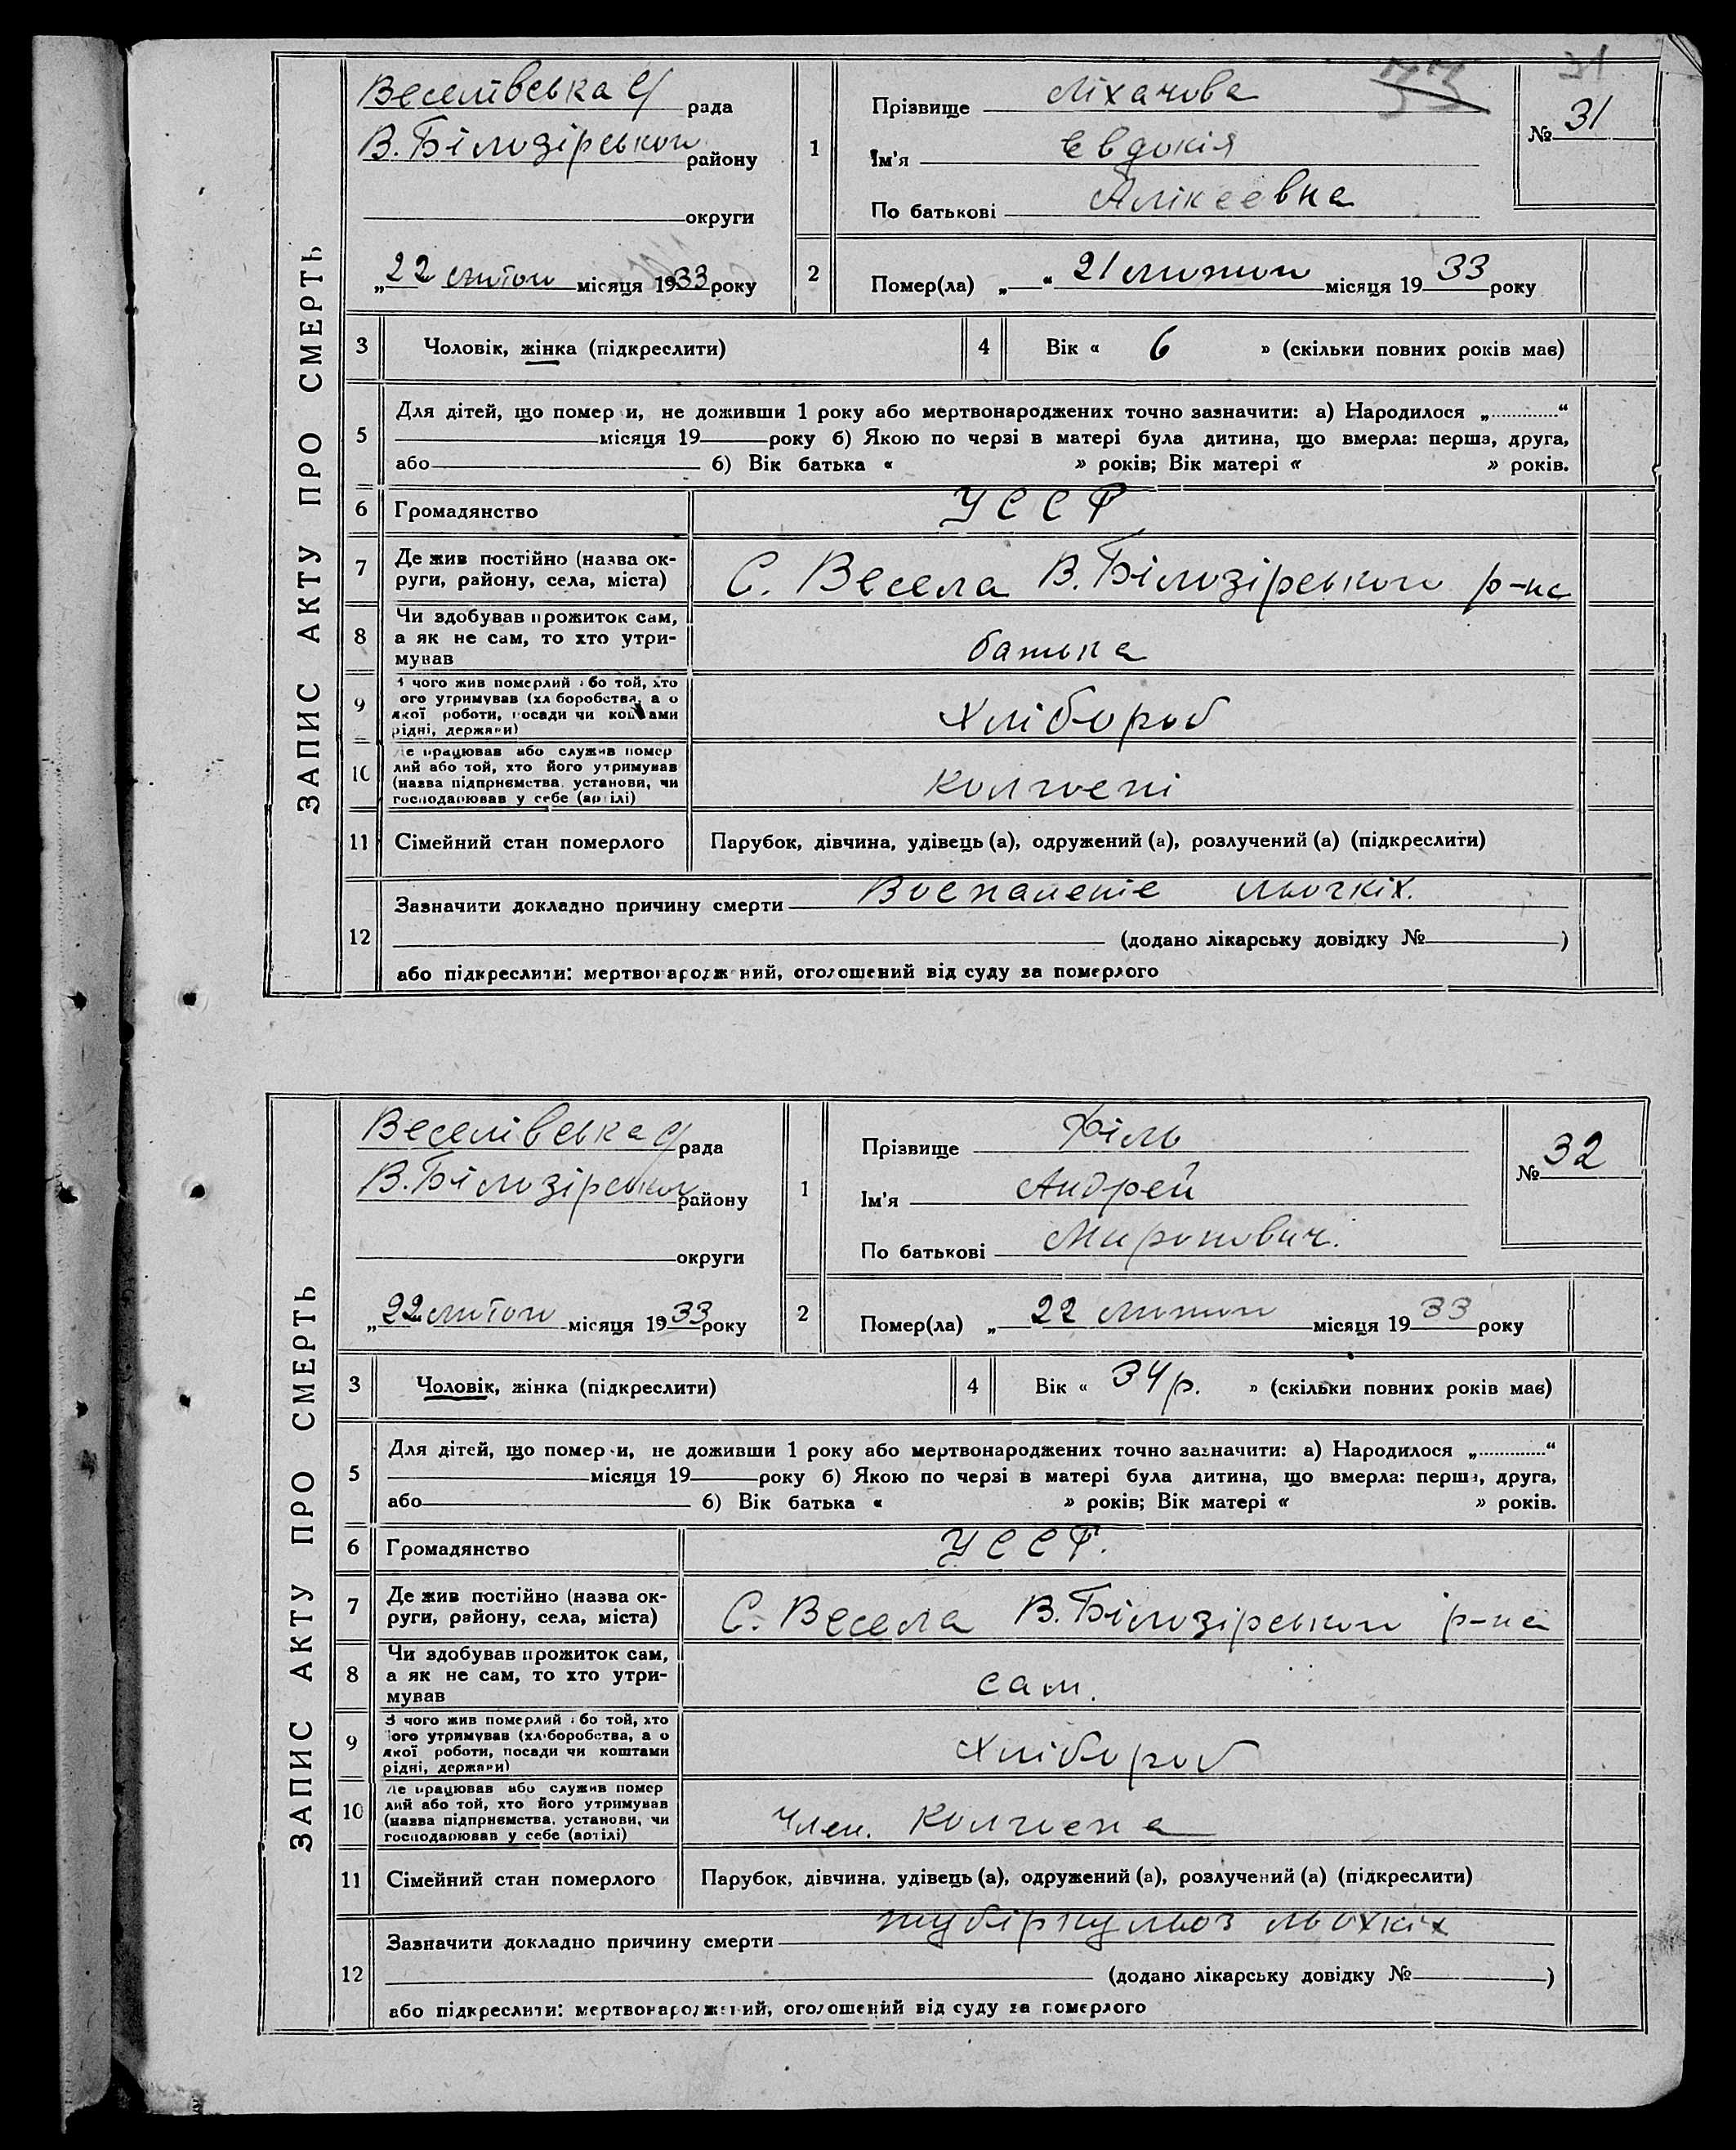 31
ЗАПИС АКТУ ПРО СМЕРТЬ
Веселівська с/рада
В. Білозірського району
округи
„22 лютого місяця 1933 року
1
Прізвище Ліхачова
Ім'я Євдокія
По батькові Алікеевна
№ 31
2
Помер(ла) „ “ 21 лютого місяця 1933 року
3 Чоловік, жінка (підкреслити)
4 Вік « 6 » (скільки повних років має)
5
Для дітей, що померли, не доживши 1 року або мертвонароджених точно зазначити: а) Народилося „............“
місяця 19 року б) Якою по черзі в матері була дитина, що вмерла: перша, друга,
або 6) Вік батька « » років; Вік матері « » років.
6 Громадянство УССР
7
Де жив постійно (назва ок-
руги, району, села, міста)
С. Весела В. Білозірського р-на
8
Чи здобував прожиток сам,
а як не сам, то хто утри-
мував
батька
9
З чого жив померлий або той, хто
його утримував (хліборобства, або
якої роботи, посади чи коштами
рідні, держави)
Хлібороб
10
Де працював або служив помер
лий або той, хто його утримував
(назва підприємства, установи, чи
господарював у себе (артілі)
колгоспі
11 Сімейний стан померлого
Парубок, дівчина, удівець (а), одружений (а), розлучений (а) (підкреслити)
12
Зазначити докладно причину смерти Воспаленіе льогкіх.
(додано лікарську довідку № )
або підкреслити: мертвонароджений, оголошений від суду за померлого
ЗАПИС АКТУ ПРО СМЕРТЬ
Веселівська с/рада
В. Білозірського району
округи
„22 лютого місяця 1933 року
1
Прізвище Філь
Ім'я Андрей
По батькові Миронович.
№ 32
2
Помер(ла) „ 22 лютого місяця 1933 року
3 Чоловік, жінка (підкреслити)
4 Вік « 34 р. » (скільки повних років має)
5
Для дітей, що померли, не доживши 1 року або мертвонароджених точно зазначити: а) Народилося „............“
місяця 19 року б) Якою по черзі в матері була дитина, що вмерла: перша, друга,
або 6) Вік батька « » років; Вік матері « » років.
6 Громадянство УССР.
7
Де жив постійно (назва ок-
руги, району, села, міста)
С. Весела В. Білозірського р-на
8
Чи здобував прожиток сам,
а як не сам, то хто утри-
мував
сам.
9
З чого жив померлий або той, хто
його утримував (хліборобства, або
якої роботи, посади чи коштами
рідні, держави)
Хлібороб
10
Де працював або служив помер
лий або той, хто його утримував
(назва підприємства, установи, чи
господарював у себе (артілі)
член. колгоспа
11 Сімейний стан померлого
Парубок, дівчина, удівець (а), одружений (а), розлучений (а) (підкреслити)
12
Зазначити докладно причину смерти тубіркульоз льохкіх
(додано лікарську довідку № )
або підкреслити: мертвонароджений, оголошений від суду за померлого